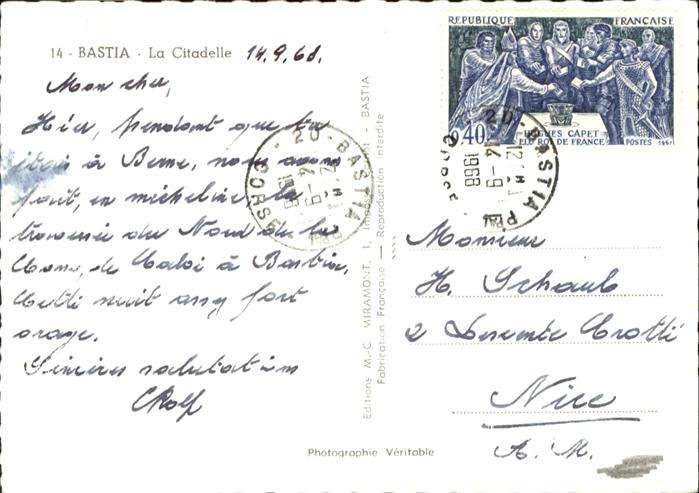 14 - BASTIA - La Citadelle 14.9.68.
Mon cher,
Hier, pendant que tu
étais à Berne, nous avons
fait, en micheline la
traversée du Nord de la
Corse, de Calvi à Bastia.
Cette nuit assez fort
orage.
Sincères salutations
Rolf
Editions M.-C. MIRAMONT, 1, - BASTIA
Fabrication Française — Reproduction interdite
Photographie Véritable
REPUBLIQUE FRANÇAISE
0,40
HUGUES CAPET
ELU ROI DE FRANCE
POSTES 1967
BASTIA
2D
14-9
1968
CORSE
BASTIA
2D
14-9
1968
CORSE
Monsieur
H. Schaub
2 Descente Crotti
Nice
A. M.